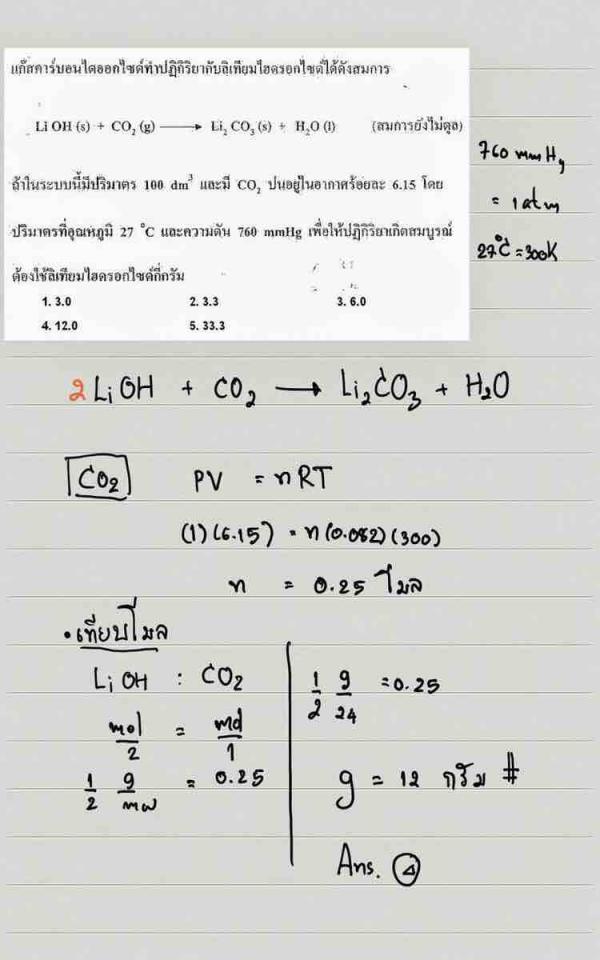 แก๊สคาร์บอนไดออกไซด์ทำปฏิกิริยากับลิเทียมไฮดรอกไซด์ได้ดังสมการ
Li OH (s) + CO₂ (g) ⟶ Li₂ CO₃ (s) + H₂O (l) (สมการยังไม่ดุล)
ถ้าในระบบนี้มีปริมาตร 100 dm³ และมี CO₂ ปนอยู่ในอากาศร้อยละ 6.15 โดย
ปริมาตรที่อุณหภูมิ 27 °C และความดัน 760 mmHg เพื่อให้ปฏิกิริยาเกิดสมบูรณ์
ต้องใช้ลิเทียมไฮดรอกไซด์กี่กรัม
1. 3.0 2. 3.3 3. 6.0
4. 12.0 5. 33.3
760 mmHg
= 1 atm
27°C = 300K
2 LiOH + CO₂ ⟶ Li₂CO₃ + H₂O
CO₂ PV = nRT
(1)(6.15) = n(0.082)(300)
n = 0.25 โมล
• เทียบโมล
LiOH : CO₂
mol/2 = mol/1
1/2 g/mw = 0.25
1/2 g/24 = 0.25
g = 12 กรัม #
Ans. ④